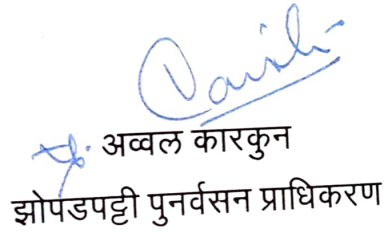 अव्वल कारकुन
झोपडपट्टी पुनर्वसन प्राधिकरण